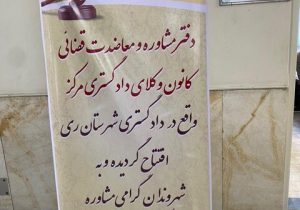 دفتر مشاوره و معاضدت قضائی
کانون وکلای دادگستری مرکز
واقع در دادگستری شهرستان ری
افتتاح گردیده و به
شهروندان گرامی مشاوره